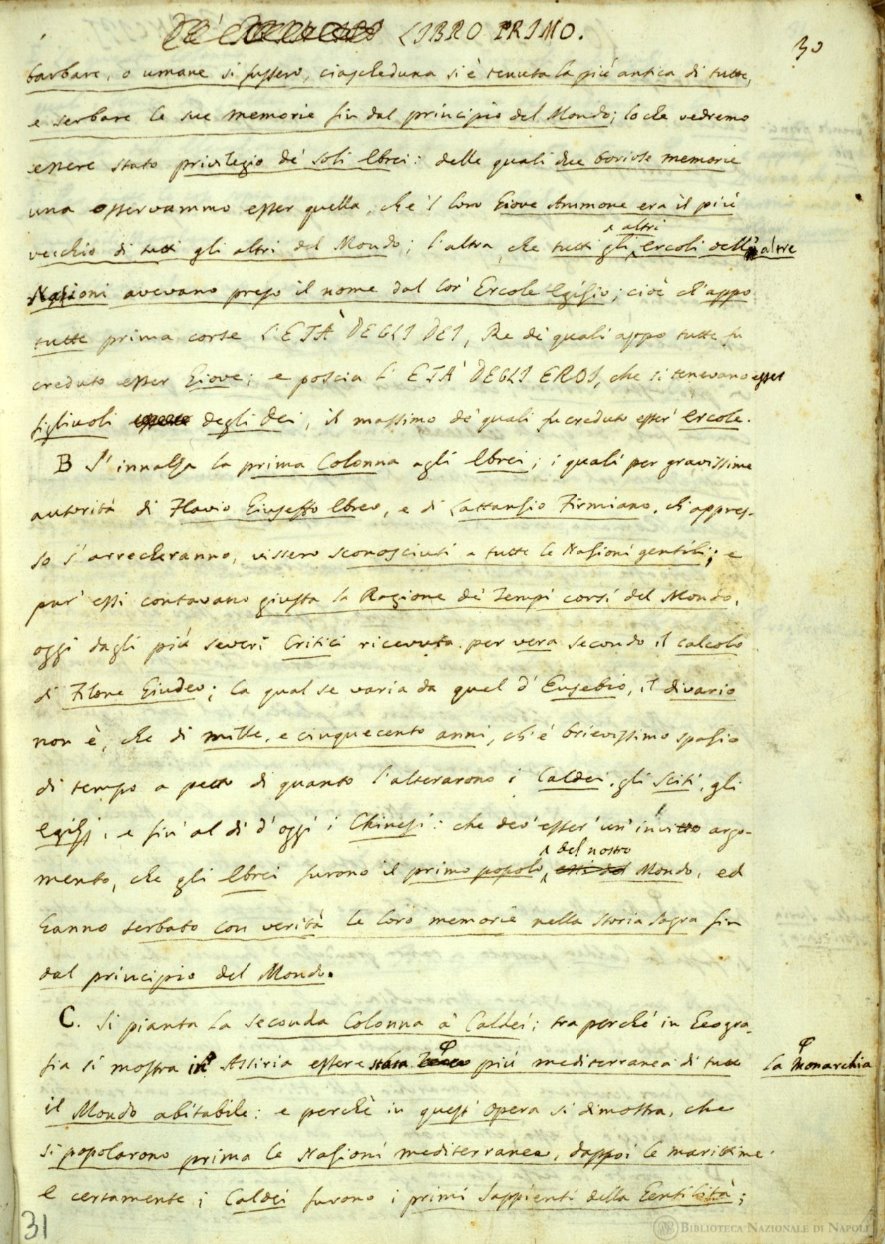 LIBRO PRIMO.
30
barbare, o umane si fussero, ciascheduna si è tenuta la più antica di tutte,
e serbare le sue memorie fin dal principio del Mondo; lo che vedremo
essere stato privilegio de' soli Ebrei: delle quali due boriose memorie
una osservammo esser quella, che 'l loro Giove Ammone era il più
vecchio di tutti gli altri del Mondo; l'altra, che tutti gli altri Ercoli dell' altre
Nazioni avevano preso il nome dal lor' Ercole Egizio; cioè ch'appo
tutte prima corse L'ETÀ DEGLI DEI, Re de' quali appo tutte fu
creduto esser Giove; e poscia l' ETA' DEGLI EROI, che si tenevano esser
figliuoli degli Dei, il massimo de' quali fu creduto esser' Ercole.
B S' innalza la prima Colonna agli Ebrei; i quali per gravissime
autorità di Flavio Giuseffo Ebreo, e di Lattanzio Firmiano, ch'appres-
so s'arrecheranno, vissero sconosciuti a tutte le Nazioni gentili; e
pur' essi contavano giusta la Ragione de' Tempi corsi del Mondo,
oggi dagli più severi Critici ricevuta per vera secondo il calcolo
di Filone Giudeo; la qual se varia da quel d' Eusebio, il divario
non è, che di mille, e cinquecento anni, ch'è brievissimo spazio
di tempo a petto di quanto l'alterarono i Caldei, gli Sciti, gli
Egizj, e fin' al dì d'oggi i Chinesi: che dev' esser' un' invitto argo-
mento, che gli Ebrei furono il primo popolo del nostro Mondo, ed
hanno serbato con verità le loro memorie nella Storia Sagra fin
dal principio del Mondo.
C. Si pianta la seconda Colonna a' Caldei; tra perchè in Geogra-
fia si mostra in Assiria essere stata φ più mediterranea di tutto φ la Monarchia
il Mondo abitabile: e perchè in quest' opera si dimostra, che
si popolarono prima le Nazioni mediterranee, dappoi le marittime.
E certamente i Caldei furono i primi Sappienti della Gentilità;
31
BIBLIOTECA NAZIONALE DI NAPOLI